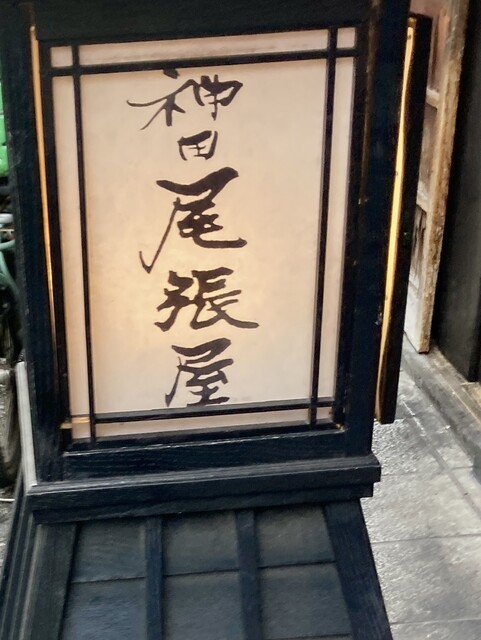 神田尾張屋